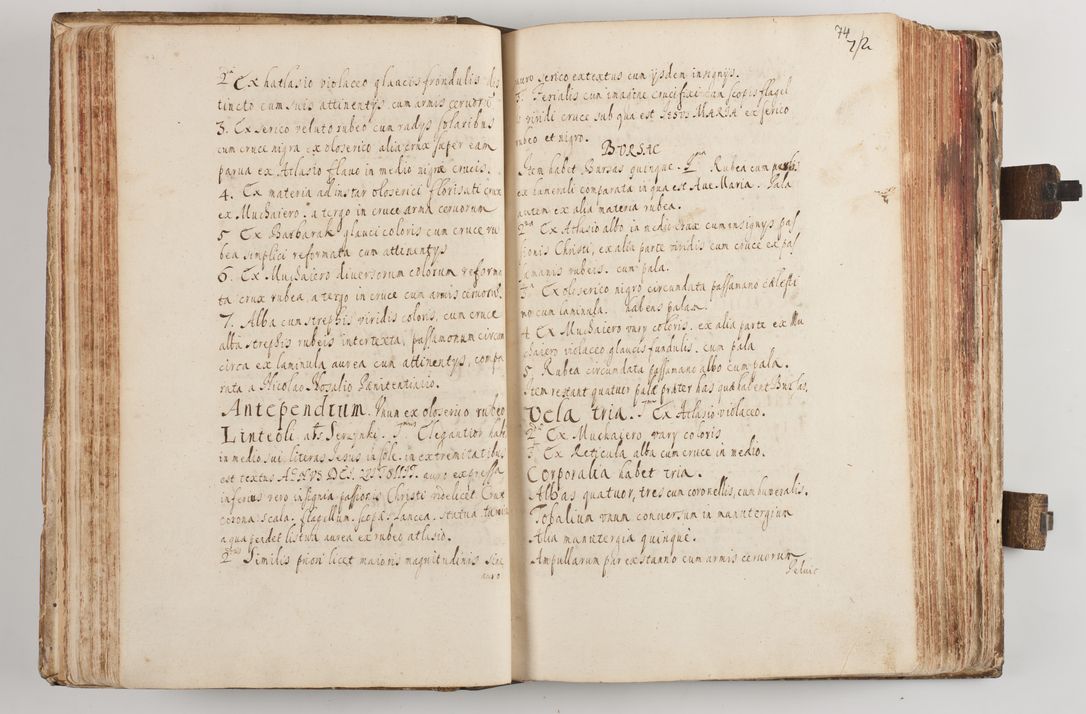 2a Ex hatlasio violaceo glaucis frondulis dis
tincto cum suis attinentys cum armis ceruorū
3. Ex serico veluto rubeo cum radys solaribus
cum cruce nigra ex oloserico alia crux super eam
parua ex Atlasio flauo in medio nigræ crucis.
4. Ex materia ad instar oloserici florisati crux
ex Muchaiero. a tergo in cruce arma ceruorum
5 Ex Barbarak glauci coloris cum cruce ru
bea simplici reformata cum attinentys
6. Ex Muchaiero diuersorum colorum reforma
ta crux rubea, a tergo in cruce cum armis ceruorū.
7. Alba cum strephis viridis coloris, cum cruce
alba strephis rubeis intertexta, passamonum circum
circa ex laminula aurea cum attinentys, compa
rata a Nicolao Vosalio Pænitentiario.
Antependium. Vnum ex oloserico rubeo
Linteoli als Serzynki. Elegantior habet
in medio sui literas Iesus in sole. in extremitatibus
est textus AGNVS DEI. auro expressa
inferius vero insignia passionis Christi videlicet Crux
corona scala, flagellum, scopæ lancea. statua
a qua pendet listula aurea ex rubeo atlasio.
2da Similis priori licet maioris magnitudinis siue
auro
74
auro serico extextus cum ysdem insignys.
3. Ferialis cum imagine crucifixi cum scopis flagel
is viridi cruce sub qua est IESVS MARIA ex serico
rubeo et nigro.
BVRSAE
Item habet Bursas quinque. 1ma Rubea cum
ex camerali comparata in qua est Aue Maria. Pala
autem ex alia materia rubea.
2da Ex Atlasio albo in medio cum insignys pas
sionis Christi, ex alia parte viridis cum cruce ex pas
samanis rubeis. cum pala.
3a Ex oloserico nigro circumdata passamano cælesti
no cum laminula. habens palam.
4 Ex Muchaiero vary coloris. ex alia parte ex Mu
chaiero violaceo glaucis fundulis. cum pala
5. Rubea circumdata passamano albo cum pala.
Item restant quatuor palæ præter has quas habent Bursas,
Vela tria. 1mum Ex Atlasio violaceo.
2dum Ex Muchaiero vary coloris
3. Ex Reticula alba cum cruce in medio.
Corporalia habet tria.
Albas quatuor, tres cum coronellis, cum humeralis.
Tobalium vnum conuersum in manutergium
Alia manutergia quinque.
Ampullarum par ex stanno cum armis ceruorum
Peluis